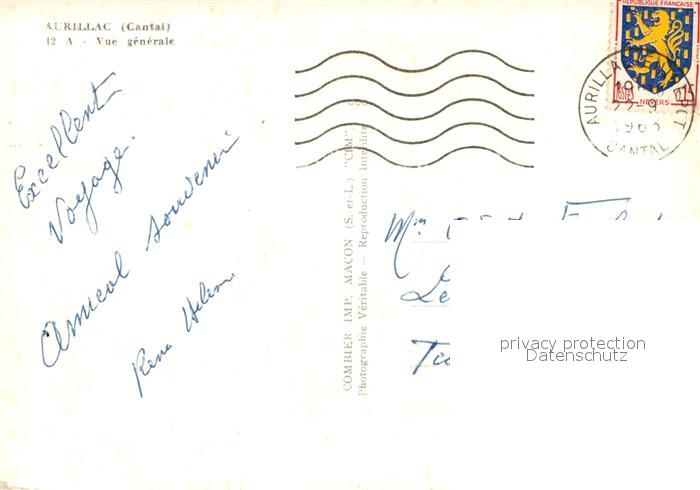 AURILLAC (Cantal)
12 A - Vue générale
Excellent
Voyage.
Amical souvenir
Rene Helene
COMBIER IMP. MACON (S.-et-L.) "CIM"
Photographie Véritable — Reproduction Interdite
REPUBLIQUE FRANÇAISE
NEVERS
0,15
AURILLAC
22-9
CANTAL
privacy protection
Datenschutz